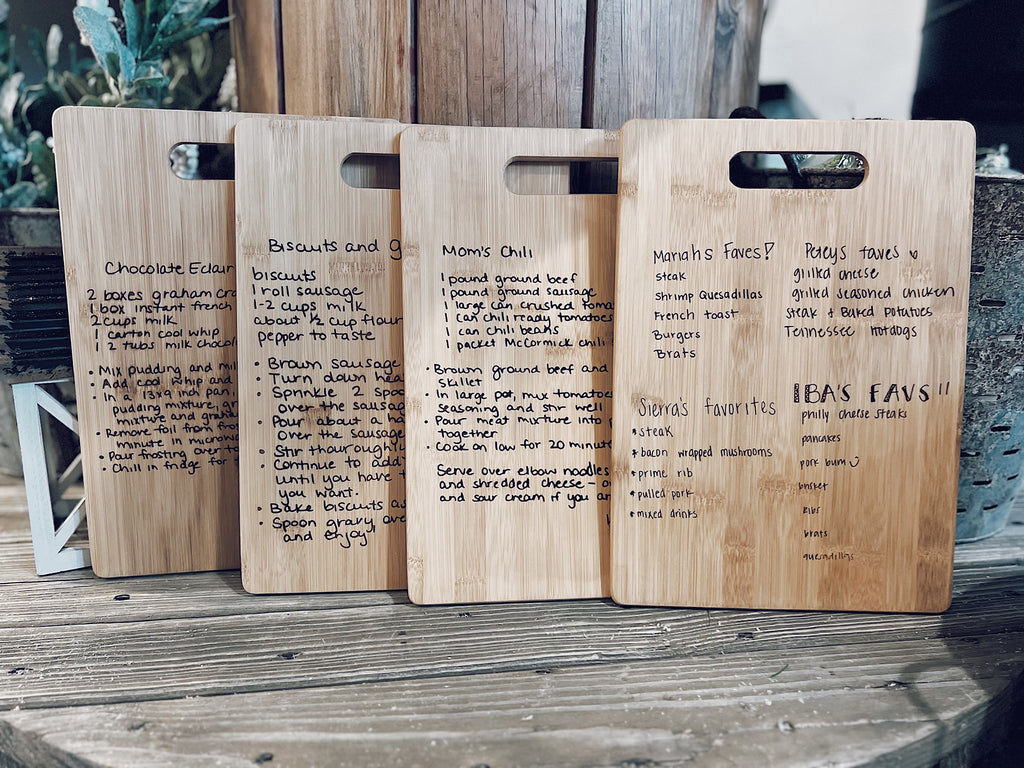 Chocolate Eclair
2 boxes graham cra
1 box instant french
2 cups milk
1 carton cool whip
1 2 tubs milk chocol
• Mix pudding and mil
• Add cool whip and
• In a 13x9 inch pan,
pudding mixture, gr
mixture and graha
• Remove foil from fros
minute in microwa
• Pour frosting over to
• Chill in fridge for
Biscuits and g
biscuits
1 roll sausage
1-2 cups milk
about 1/2 cup flour
pepper to taste
• Brown sausage
• Turn down hea
• Sprinkle 2 spoo
over the sausag
• Pour about a ha
over the sausage
• Stir thouroughly
• Continue to add
until you have t
you want.
• Bake biscuits as
• Spoon gravy over
and enjoy"
Mom's Chili
1 pound ground beef
1 pound ground sausage
1 large can crushed tomat
1 can chili ready tomatoes
1 can chili beans
1 packet McCormick chili s
• Brown ground beef and
skillet
• In large pot, mix tomatoes
seasoning and stir well
• Pour meat mixture into p
together
• Cook on low for 20 minute
Serve over elbow noodles
and shredded cheese - o
and sour cream if you ar
Mariahs Faves!
Steak
Shrimp Quesadillas
French toast
Burgers
Brats
Peteys faves
grilled cheese
grilled seasoned chicken
steak + Baked potatoes
Tennessee hotdogs
Sierra's favorites
* steak
* bacon wrapped mushrooms
* prime rib
* pulled pork
* mixed drinks
IBA'S FAVS!!
philly cheese steaks
pancakes
pork bum
brisket
ribs
brats
quesadillas